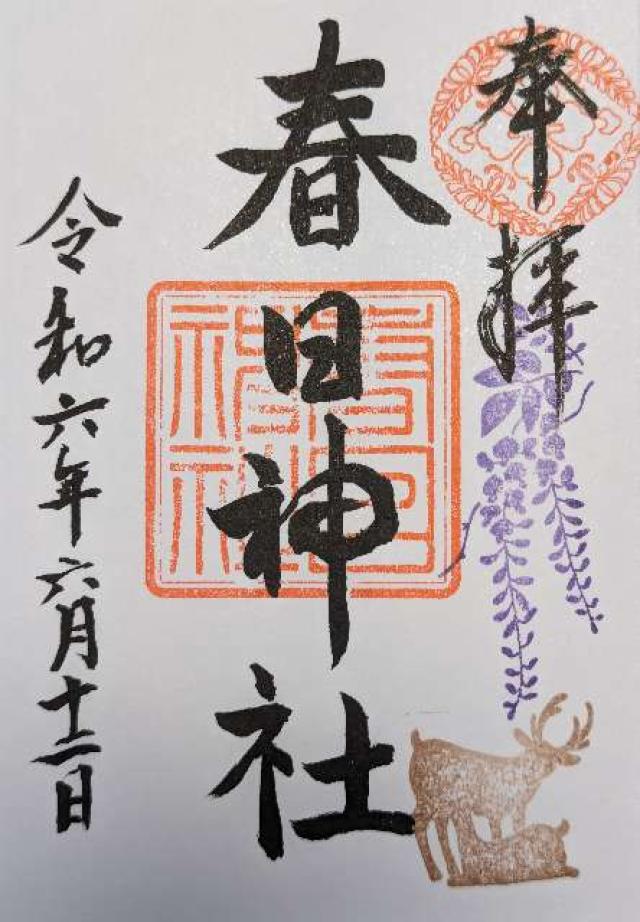 奉拝
春日神社
令和六年六月十二日